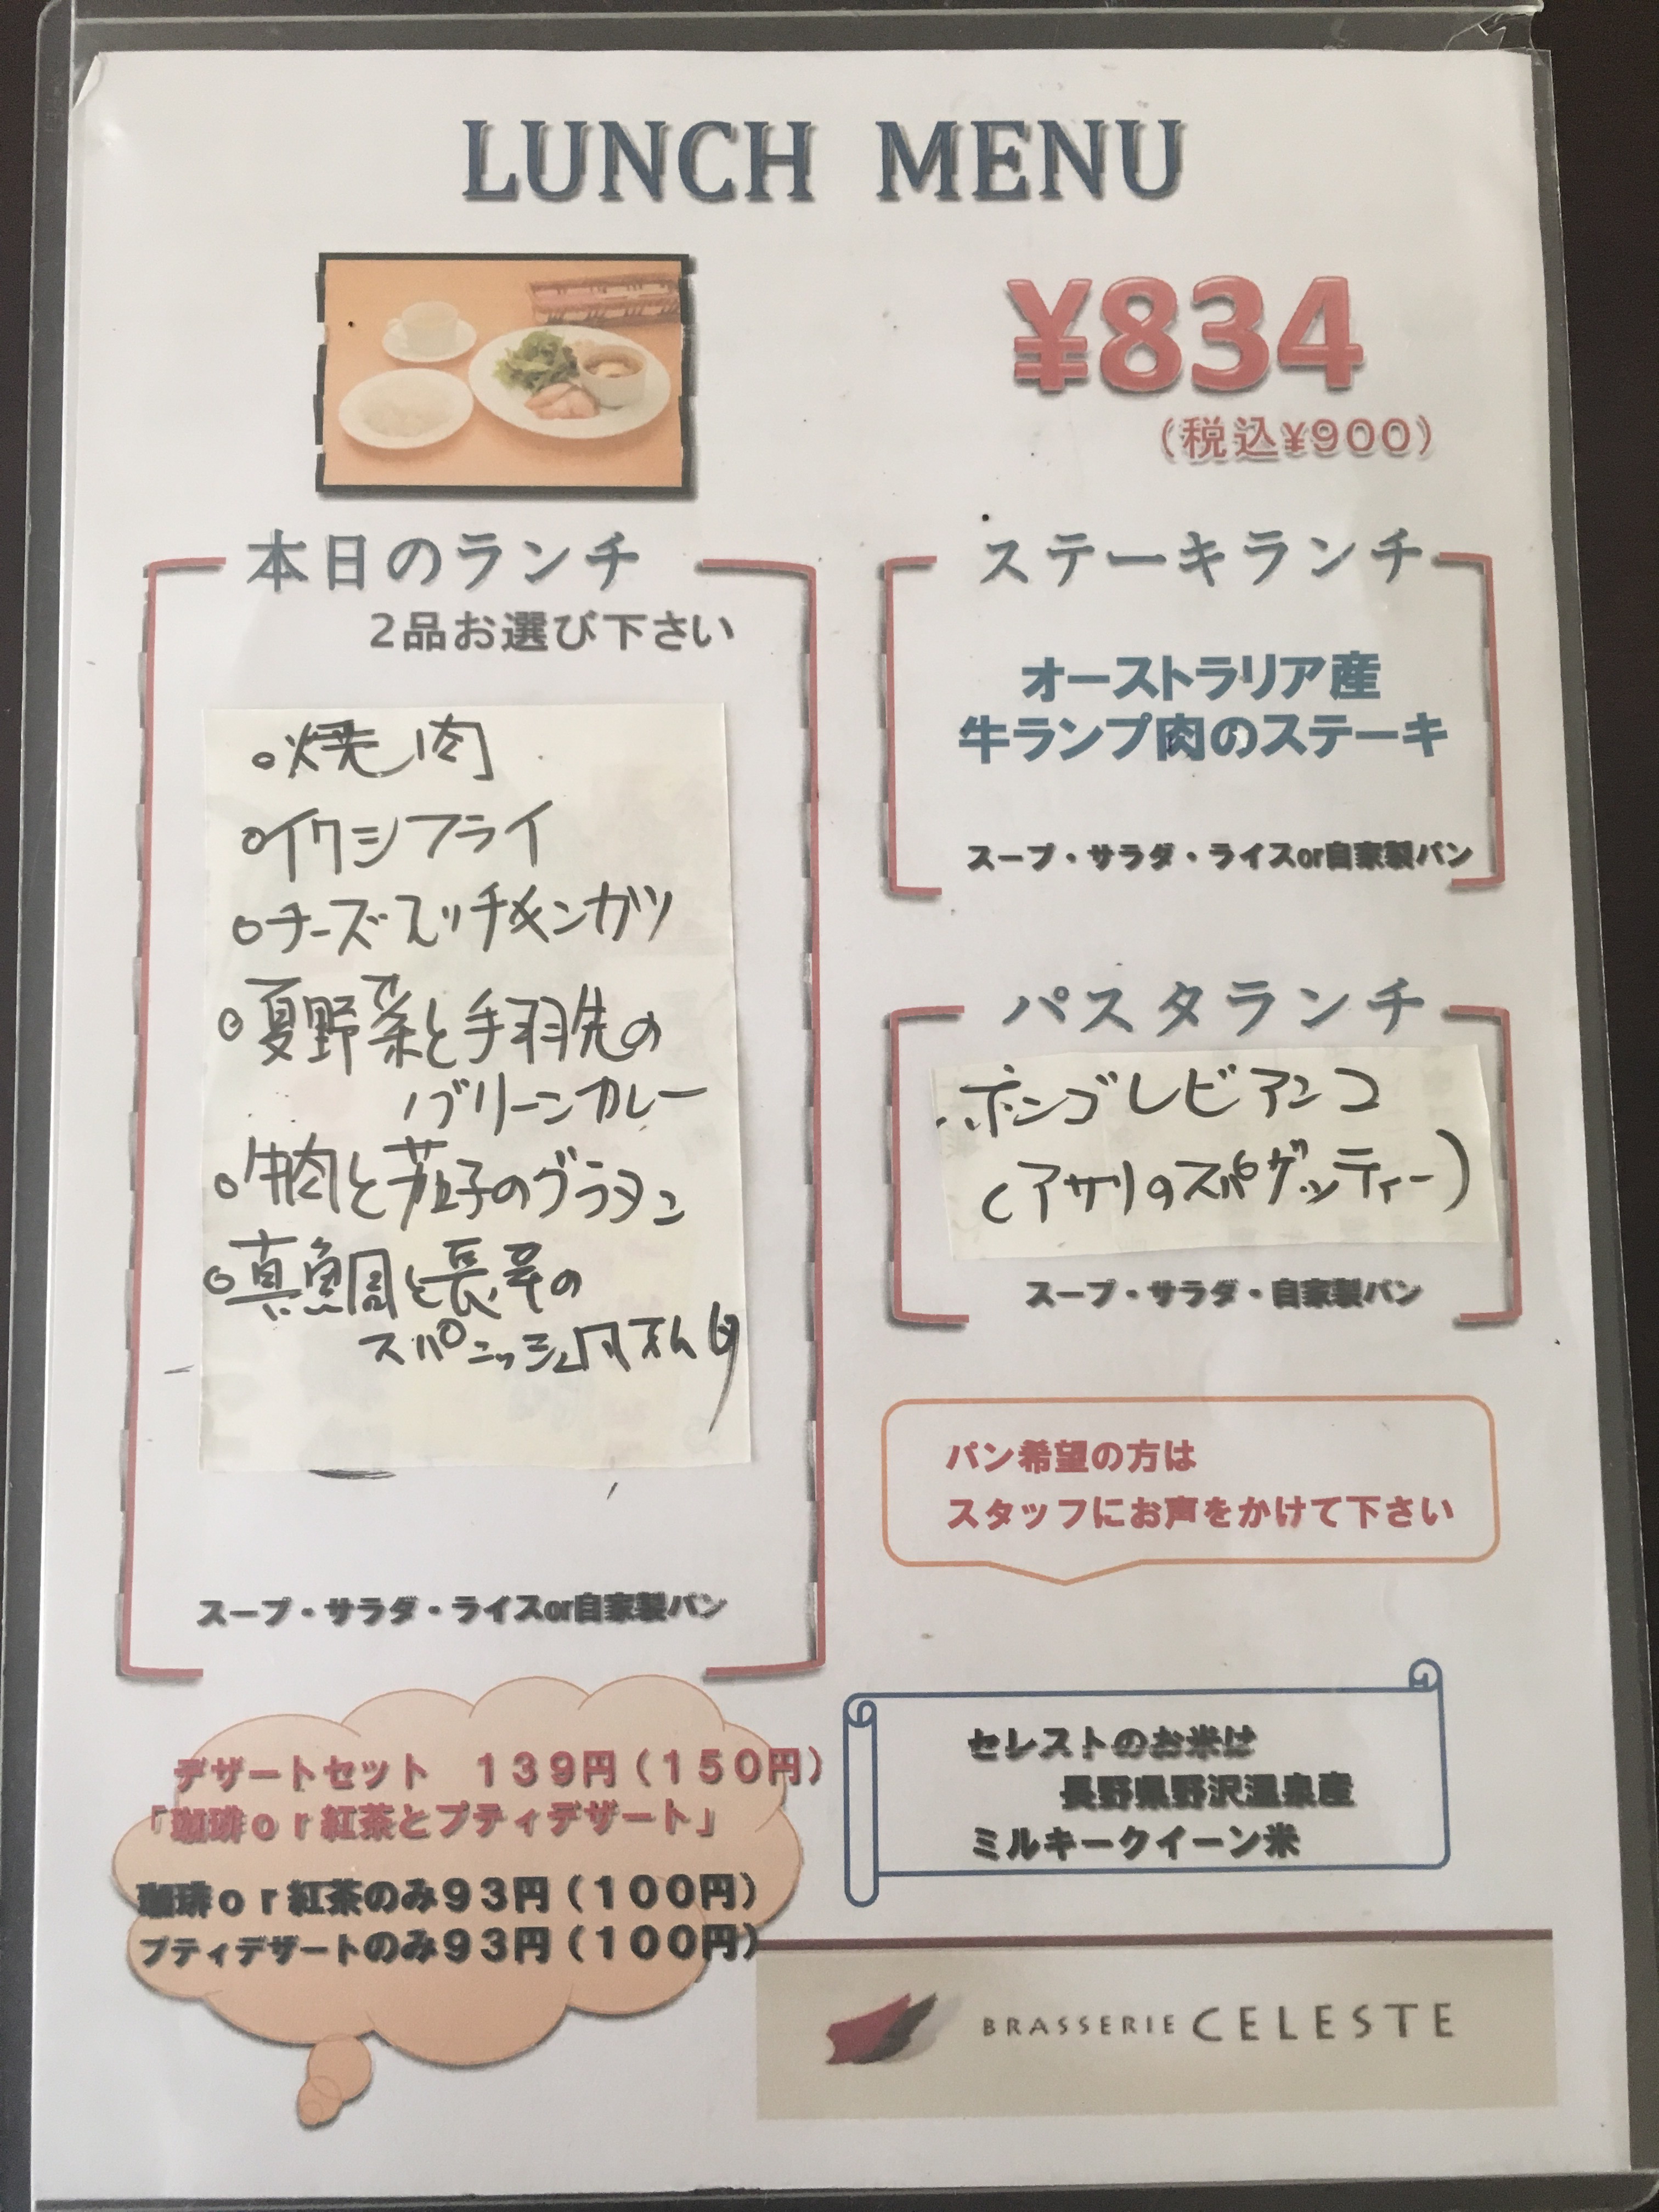 LUNCH MENU
¥834
(税込¥900)
本日のランチ
2品お選び下さい
○焼肉
○イワシフライ
○チーズ チキンカツ
○夏野菜と手羽先の
グリーンカレー
○牛肉と茄子のグラタン
○真鯛と長芋の
スパニッシュ
スープ・サラダ・ライスor自家製パン
ステーキランチ
オーストラリア産
牛ランプ肉のステーキ
スープ・サラダ・ライスor自家製パン
パスタランチ
ボンゴレビアンコ
(アサリのスパゲッティー)
スープ・サラダ・自家製パン
パン希望の方は
スタッフにお声をかけて下さい
デザートセット 139円(150円)
「珈琲or紅茶とプティデザート」
珈琲or紅茶のみ93円(100円)
プティデザートのみ93円(100円)
セレストのお米は
長野県野沢温泉産
ミルキークイーン米
BRASSERIE CELESTE